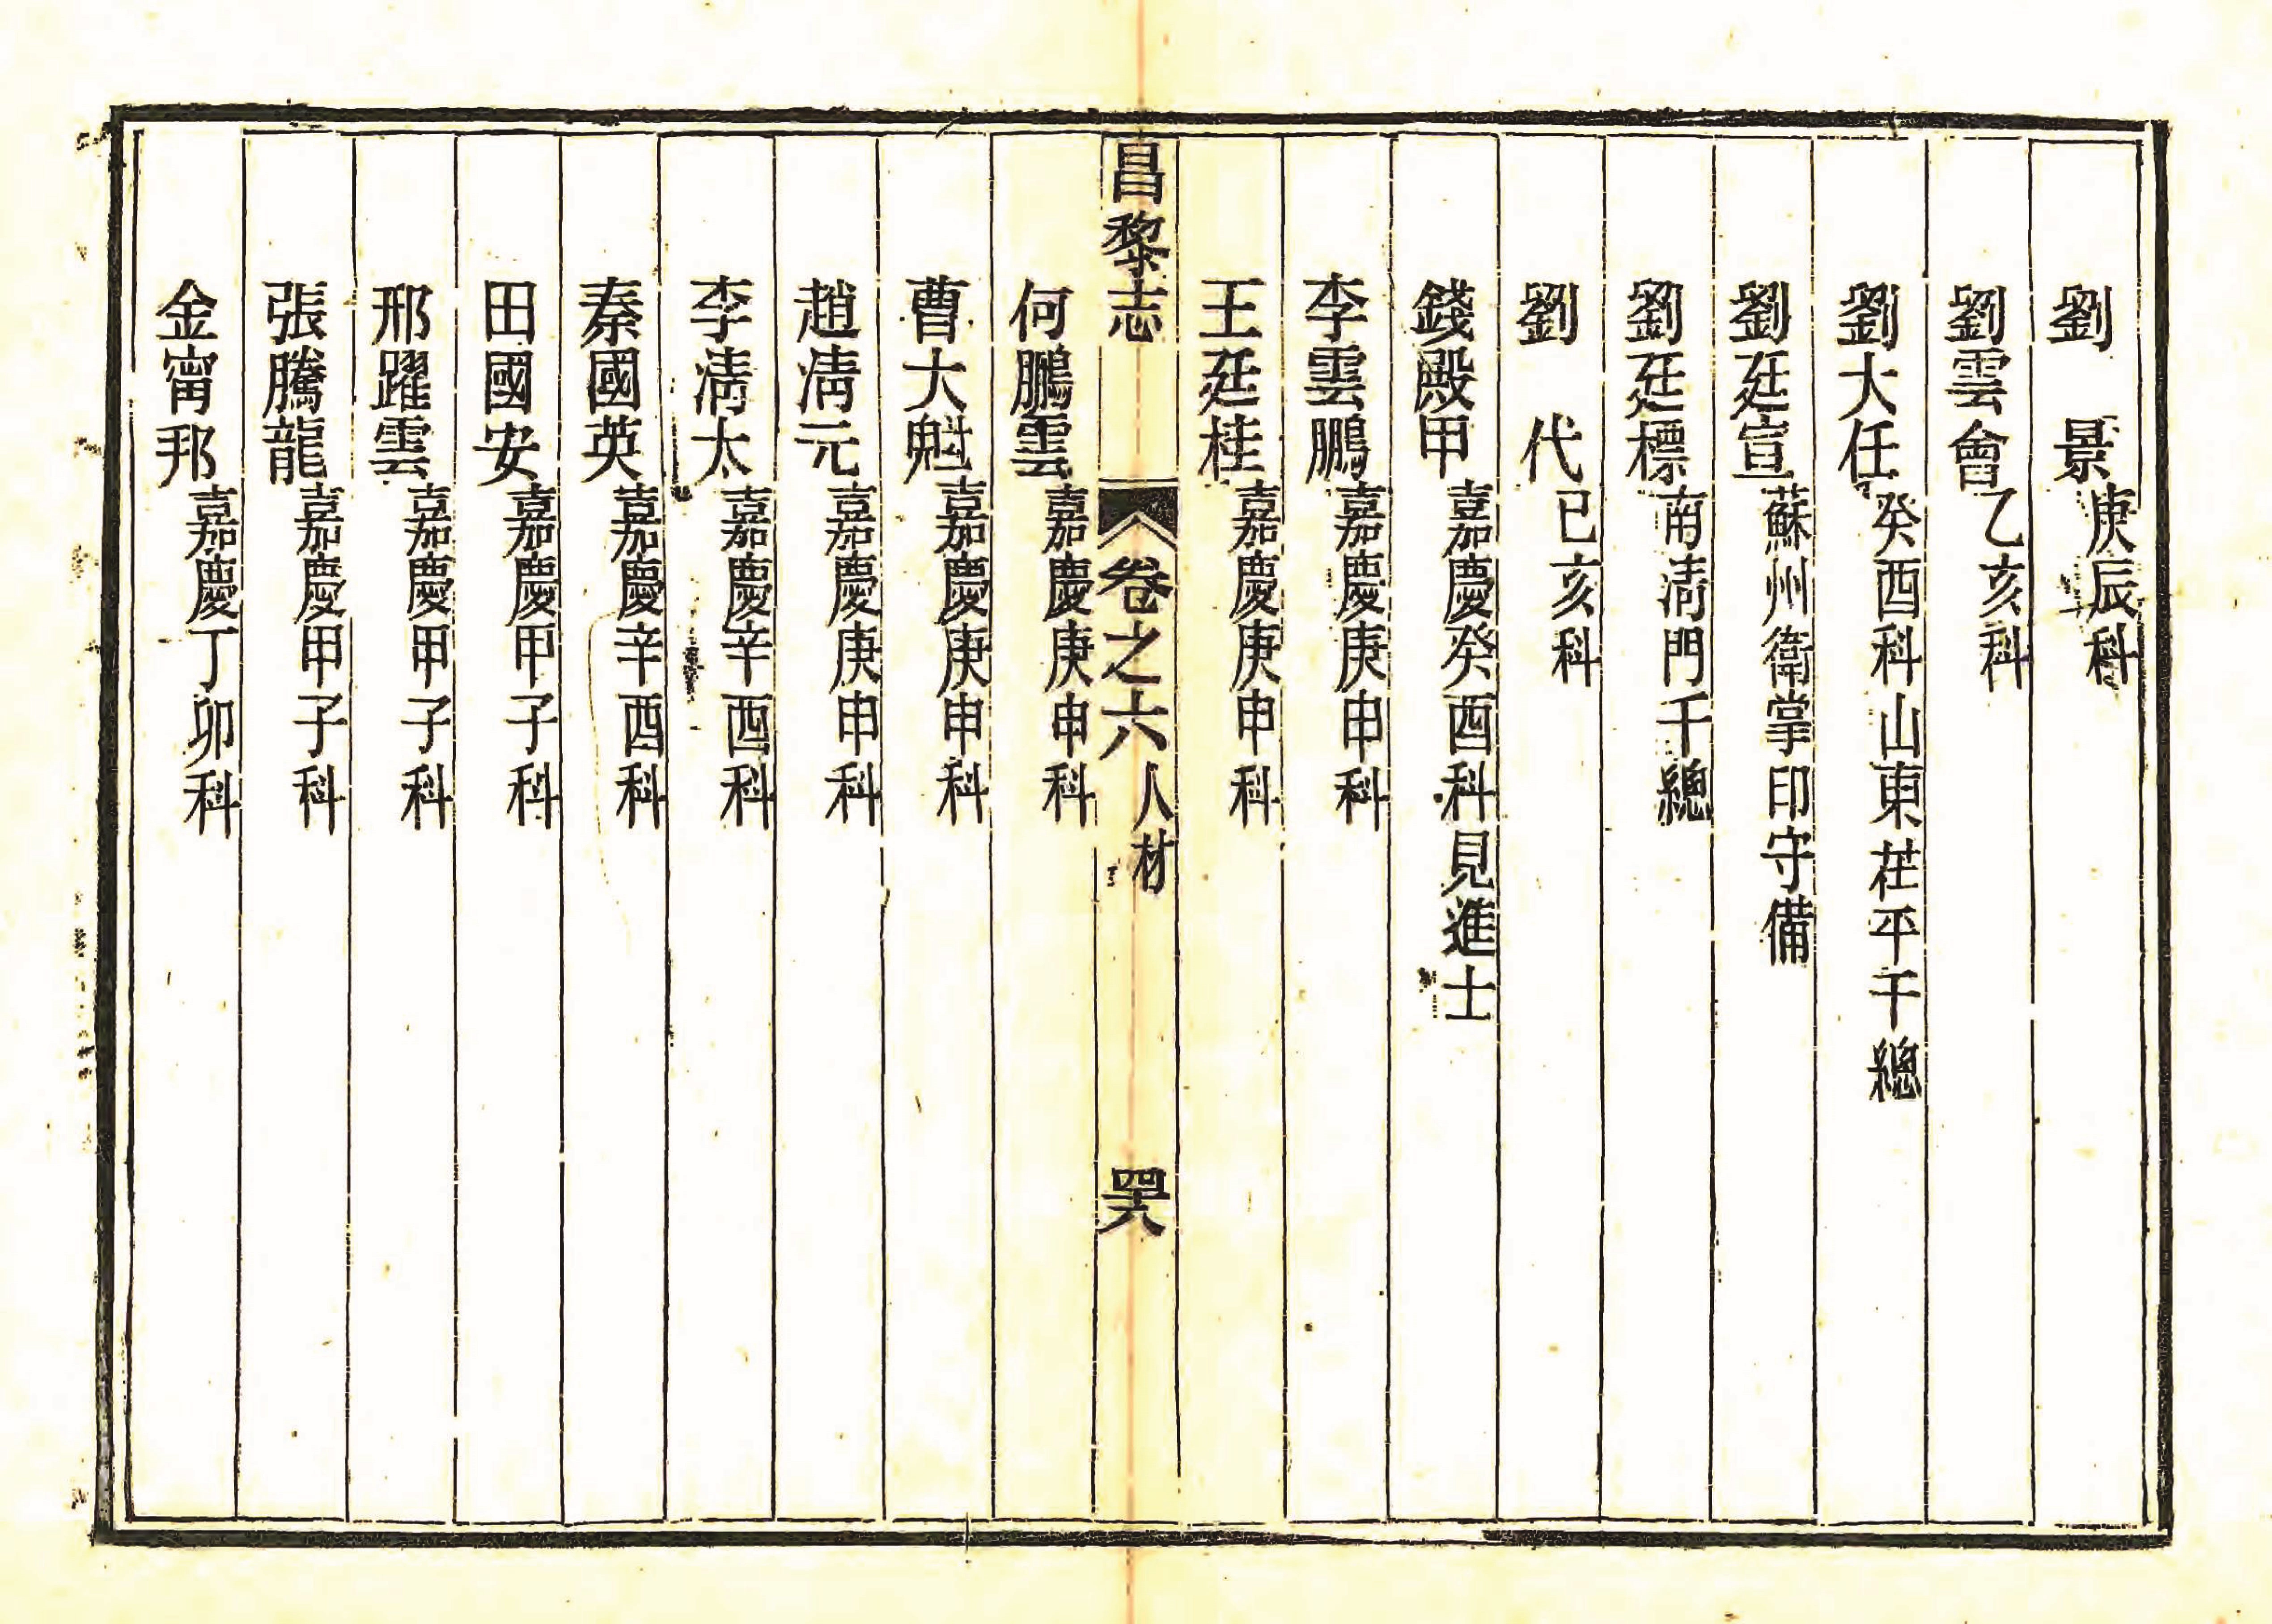 劉　景庚辰科
劉雲會乙亥科
劉大任癸酉科山東茌平千總
劉廷宣蘇州衛掌印守備
劉廷標南清門千總
劉　代已亥科
錢殿甲嘉慶癸酉科見進士
李雲鵬嘉慶庚申科
王廷桂嘉慶庚申科
昌黎志　卷之六人材　罘
何鵬雲嘉慶庚申科
曹大魁嘉慶庚申科
趙清元嘉慶庚申科
李清太嘉慶辛酉科
秦國英嘉慶辛酉科
田國安嘉慶甲子科
邢躍雲嘉慶甲子科
張騰龍嘉慶甲子科
金甯邦嘉慶丁卯科